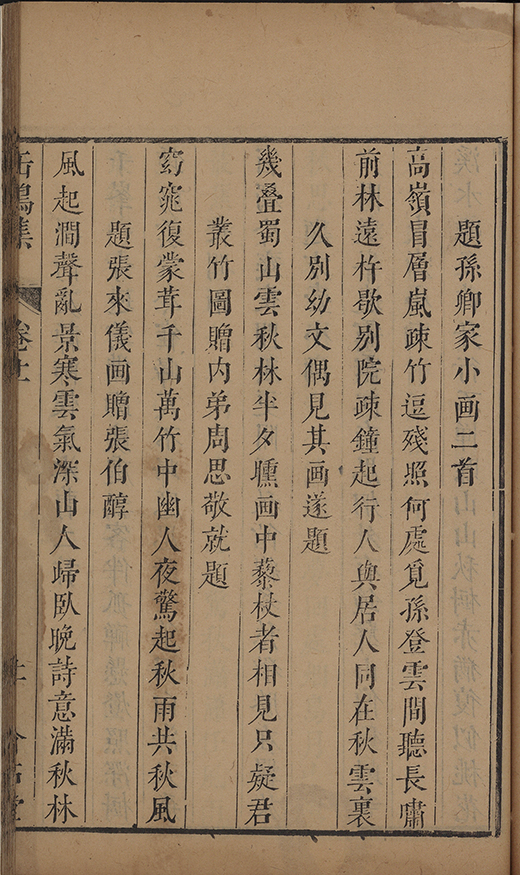 題孫卿家小画二首
高嶺冒層嵐疎竹逗殘照何處覓孫登雲間聽長嘯
前林遠杵歇别院疎鐘起行人與居人同在秋雲裏
久别幼文偶見其画遂題
幾疊蜀山雲秋林半夕曛画中藜杖者相見只疑君
叢竹圖贈内弟周思敬就題
窈窕復蒙茸千山萬竹中幽人夜驚起秋雨共秋風
題張來儀画贈張伯醇
風起澗聲亂景寒雲氣深山人歸臥晚詩意滿秋林
缶鳴集 卷十